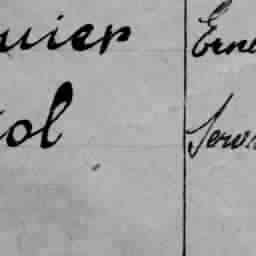 uier Erne
ol Serv